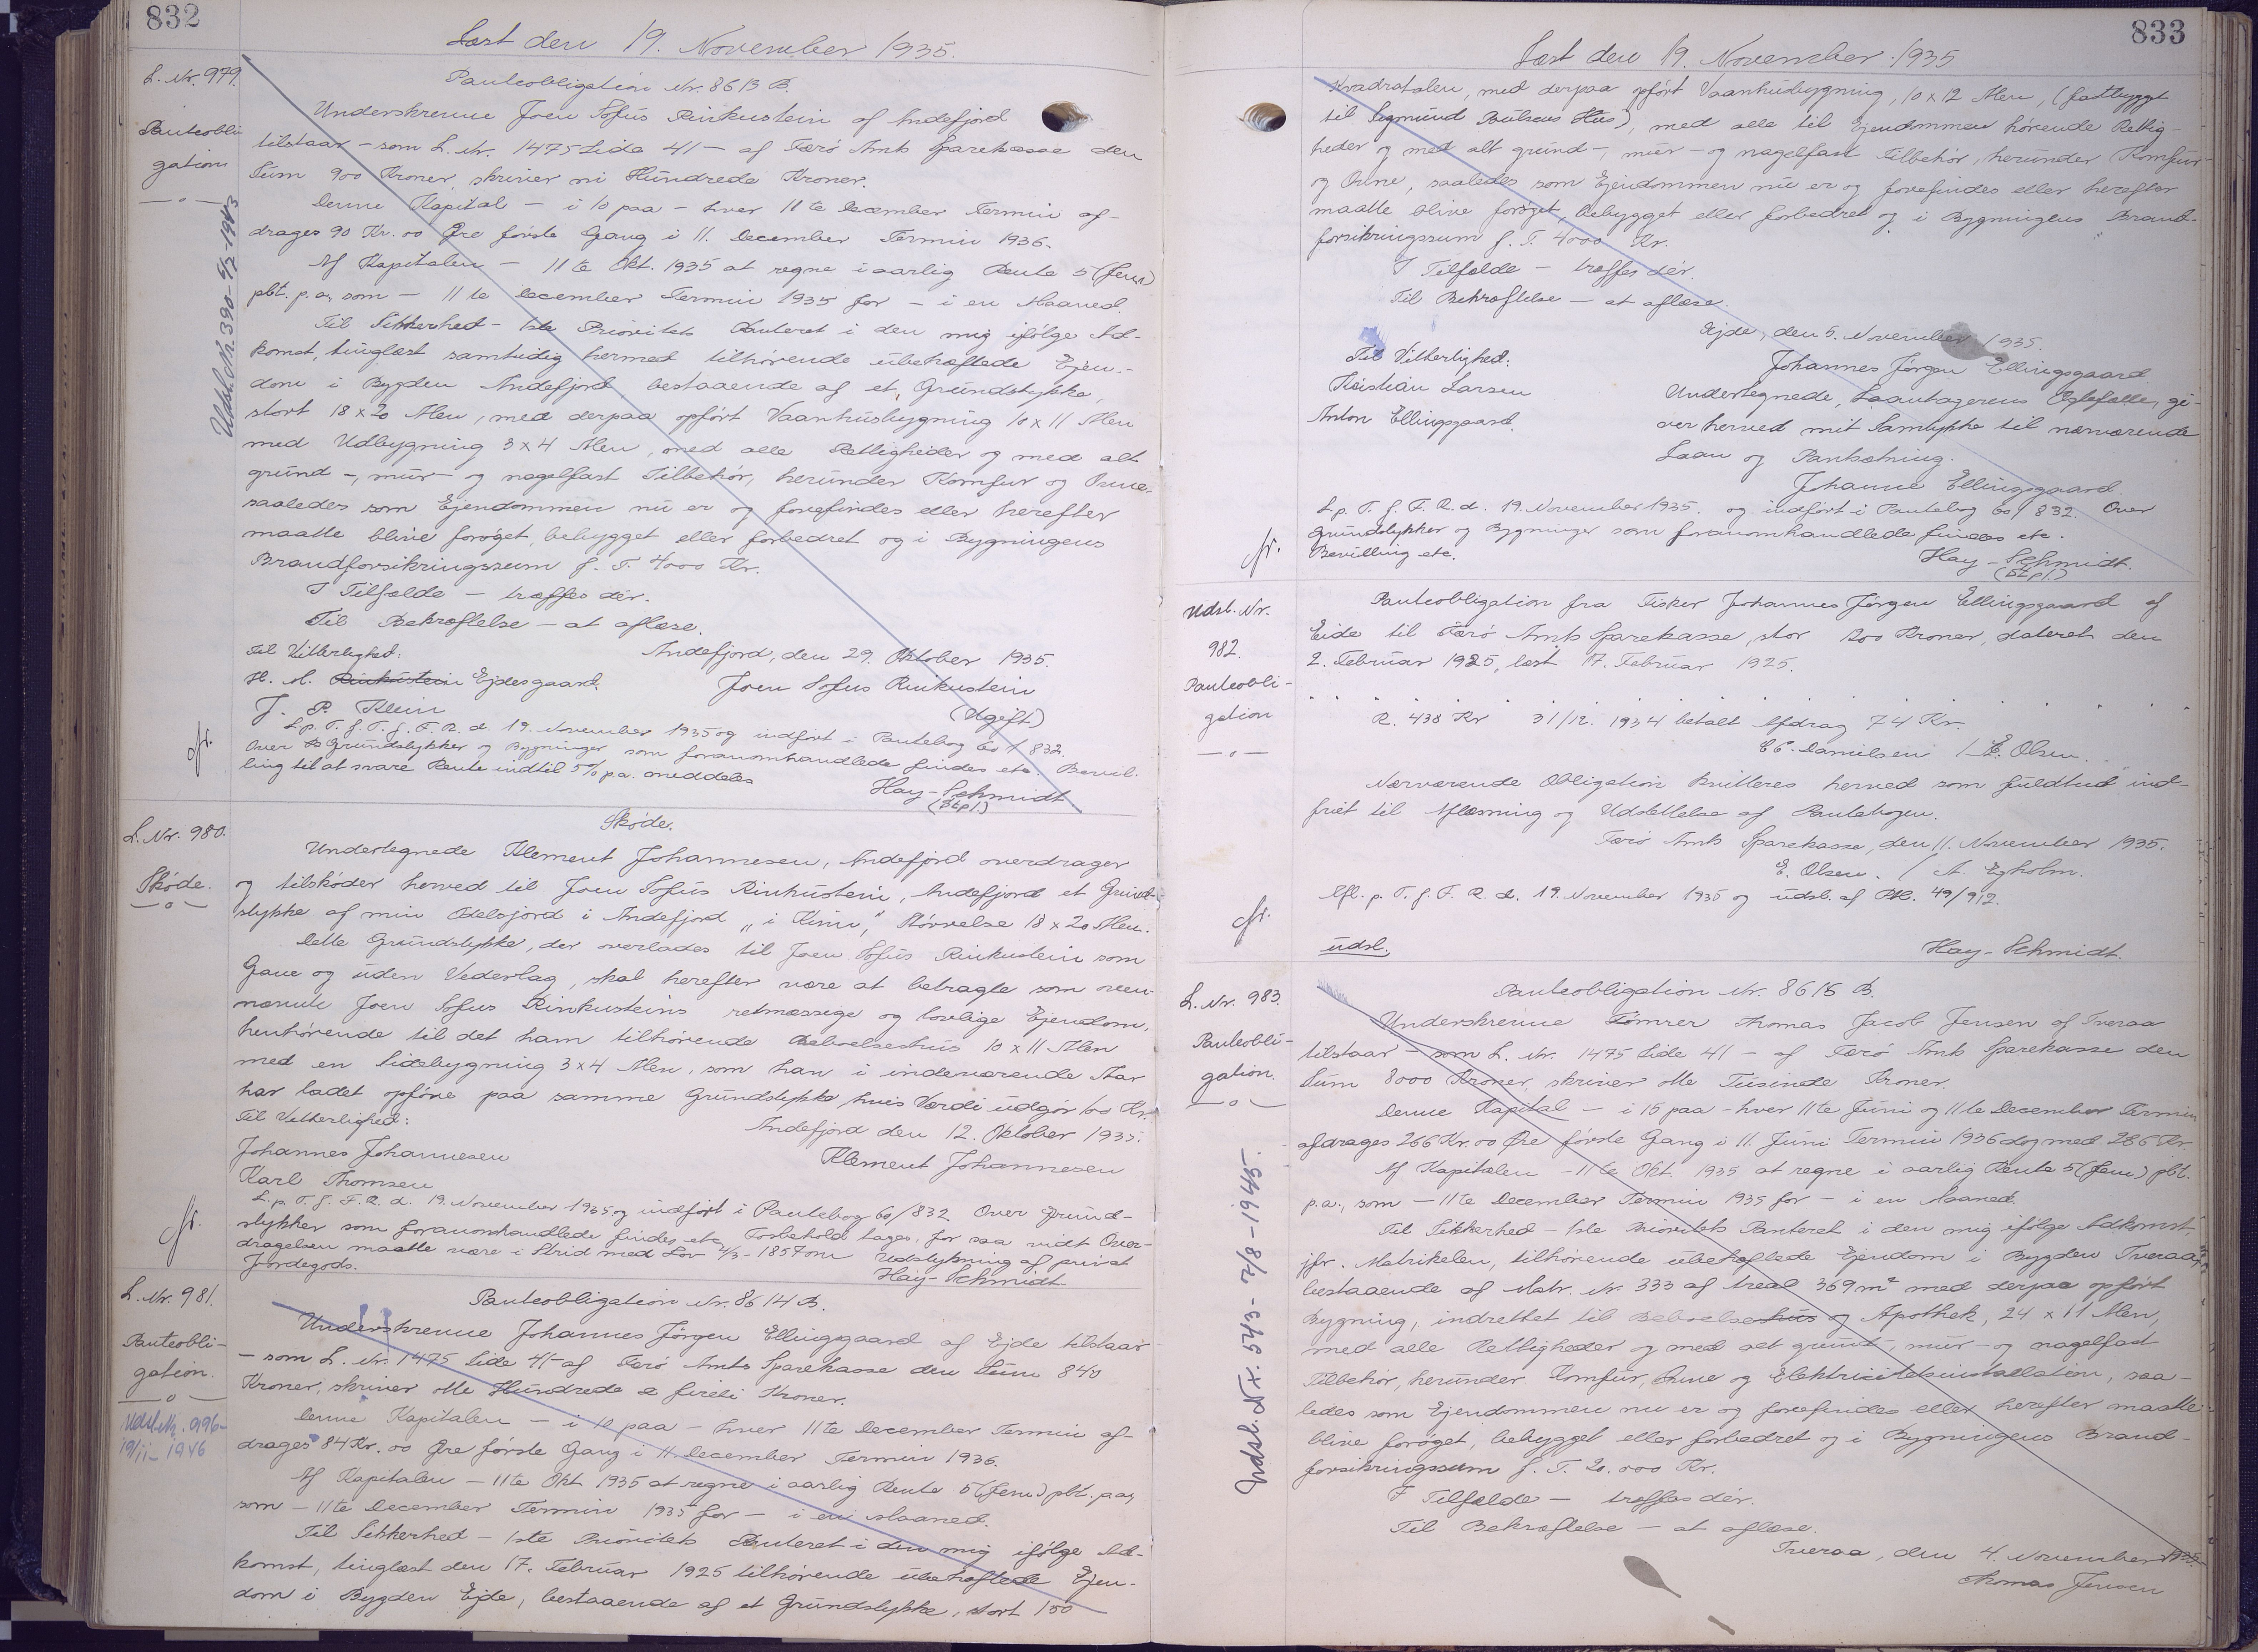 832
Læst den 19. November 1935.
L. Nr. 979.
Panteobli-
gation
Udsl. Nr. 390 - 5/7 - 1943
Panteobligation Nr. 8613 B.
Underskrevne Joen Sofus Rinkustein af Andefjord
tilstaar - som L. Nr. 1475 Side 41 - af Færø Amts Sparekasse den
Sum 900 Kroner, skriver ni Hundrede Kroner.
Denne Kapital - i 10 paa - hver 11te December Termin af-
drages 90 Kr. 00 Øre første Gang i 11. December Termin 1936.
Af Kapitalen - 11te Okt. 1935 at regne i aarlig Rente 5 (fem)
pbt. p.a., som - 11te December Termin 1935 for - i en Maaned.
Til Sikkerhed - 1ste Prioritets Panteret i den mig ifølge Ad-
komst, tinglæst samtidig hermed tilhørende ubehæftede Ejen-
dom i Bygden Andefjord bestaaende af et Grundstykke,
stort 18 x 20 Alen, med derpaa opført Vaanhusbygning 10 x 11 Alen
med Udbygning 3 x 4 Alen, med alle Rettigheder og med alt
grund-, mur- og nagelfast Tilbehør, herunder Komfur og Ovne,
saaledes som Ejendommen nu er og forefindes eller herefter
maatte blive forøget, bebygget eller forbedret og i Bygningens
Brandforsikringssum f. T. 4000 Kr.
I Tilfælde - træffes dér.
Til Bekræftelse - at aflæse.
Til Vitterlighed: Andefjord, den 29. Oktober 1935.
H. M. Rinkustein Ejdesgaard. Joen Sofus Rinkustein
J. P. Klein (Ugift)
L. p. T. f. T. f. F. R. d. 19. November 1935 og indført i Pantebog 60/832.
Over Grundstykker og Bygninger som foranomhandlede findes etc. Bevil-
ling til at svare Rente indtil 5% p.a. meddeles
Hay-Schmidt
(Stpl)
fr.
L. Nr. 980.
Skøde.
Skøde.
Undertegnede Klement Johannesen, Andefjord overdrager
og tilskøder herved til Joen Sofus Rinkustein, Andefjord et Grund-
stykke af min Odelsjord i Andefjord „i Kinn“, Størrelse 18 x 20 Alen.
Dette Grundstykke, der overlades til Joen Sofus Rinkustein som
Gave og uden Vederlag, skal herefter være at betragte som oven-
nævnte Joen Sofus Rinkusteins retmæssige og lovlige Ejendom,
henhørende til det ham tilhørende Beboelseshus 10 x 11 Alen
med en Sidebygning 3 x 4 Alen, som han i indeværende Aar
har ladet opføre paa samme Grundstykke hvis Værdi udgør 60 Kr.
Til Vitterlighed: Andefjord den 12. Oktober 1935.
Johannes Johannesen Klement Johannesen
Karl Thomsen
L. p. T. f. F. R. d. 19. November 1935 og indført i Pantebog 60/832 Over Grund-
stykker som foranomhandlede findes etc. Forbehold tages, for saa vidt Over-
dragelsen maatte være i Strid med Lov 4/3-1857 om Udstykning af privat
Jordegods. Hay-Schmidt
fr.
L. Nr. 981.
Panteobli-
gation.
Udsl. Nr. 996-
19/11-1946
Panteobligation Nr. 8614 B.
Underskrevne Johannes Jørgen Ellingsgaard af Ejde tilstaar
- som L. Nr. 1475 Side 41 - af Færø Amts Sparekasse den Sum 840
Kroner, skriver otte Hundrede & fireti Kroner.
Denne Kapitalen - i 10 paa - hver 11te December Termin af-
drages 84 Kr. 00 Øre første Gang i 11 December Termin 1936.
Af Kapitalen - 11te Okt 1935 at regne i aarlig Rente 5 (fem) pbt. p.a.,
som - 11te December Termin 1935 for - i en Maaned.
Til Sikkerhed - 1ste Prioritets Panteret i den mig ifølge Ad-
komst, tinglæst den 17. Februar 1925 tilhørende ubehæftede Ejen-
dom i Bygden Ejde, bestaaende af et Grundstykke, stort 150
833
Læst den 19. November 1935
Kvadratalen, med derpaa opført Vaanhusbygning, 10 x 12 Alen, (fastbygget
til Sigmund Poulsens Hus), med alle til Ejendommen hørende Rettig-
heder og med alt grund-, mur- og nagelfast Tilbehør, herunder Komfur-
og Ovne, saaledes som Ejendommen nu er og forefindes eller herefter
maatte blive forøget, bebygget eller forbedret og i Bygningens Brand-
forsikringssum f. T. 4000 Kr.
I Tilfælde - træffes dér.
Til Bekræftelse - at aflæse.
Ejde, den 5. November 1935.
Til Vitterlighed: Johannes Jørgen Ellingsgaard
Kristian Larsen Undertegnede, Laantagerens Ægtefælle, gi-
Anton Ellingsgaard. ver herved mit Samtykke til nærværende
Laan og Pantsætning.
Johanne Ellingsgaard
L. p. T. f. F. R. d. 19. November 1935. og indført i Pantebog 60/832. Over
Grundstykker og Bygninger som foranomhandlede findes etc.
Bevilling etc. Hay-Schmidt.
(Stpl)
fr.
Udsl. Nr.
982.
Panteobli-
gation
Panteobligation fra Fisker Johannes Jørgen Ellingsgaard af
Eide til Færø Amts Sparekasse, stor 1200 Kroner, dateret den
2. Februar 1925, læst 17. Februar 1925.
R. 438 Kr 31/12. 1934 betalt Afdrag 74 Kr.
C C. Danielsen / E. Olsen.
Nærværende Obligation kvitteres herved som fuldtud ind-
friet til Aflæsning og Udslettelse af Pantebogen.
Færø Amts Sparekasse, den 11. November 1935.
E. Olsen. / A. Egholm.
Afl. p. T. f. F. R. d. 19. November 1935 og udsl. af Ptb. 49/912.
fr.
udsl. Hay-Schmidt.
L. Nr. 983.
Panteobli-
gation.
Udsl. Nr. 543 - 7/8 - 1945.
Panteobligation Nr. 8615 B.
Underskrevne Tømrer Thomas Jacob Jensen af Tveraa
tilstaar - som L. Nr. 1475 Side 41 - af Færø Amts Sparekasse den
Sum 8000 Kroner, skriver otte Tusinde Kroner.
Denne Kapital - i 15 paa - hver 11te Juni og 11te December Termin
afdrages 266 Kr. 00 Øre første Gang i 11. Juni Termin 1936 dog med 286 Kr.
Af Kapitalen - 11te Okt. 1935 at regne i aarlig Rente 5 (fem) pbt.
p.a., som - 11te December Termin 1935 for - i en Maaned.
Til Sikkerhed - 1ste Prioritets Panteret i den mig ifølge Adkomst,
jfr. Matrikelen, tilhørende ubehæftede Ejendom i Bygden Tveraa,
bestaaende af Matr. Nr. 333 af Areal 369 m² med derpaa opført
Bygning, indrettet til Beboelseshus og Apothek, 24 x 11 Alen,
med alle Rettigheder og med alt grund-, mur- og nagelfast
Tilbehør, herunder Komfur, Ovne og Elektricitetsinstallation, saa-
ledes som Ejendommen nu er og forefindes eller herefter maatte
blive forøget, bebygget eller forbedret og i Bygningens Brand-
forsikringssum f. T. 20.000 Kr.
I Tilfælde - træffes dér.
Til Bekræftelse - at aflæse.
Tveraa, den 4. November 1935.
Thomas Jensen